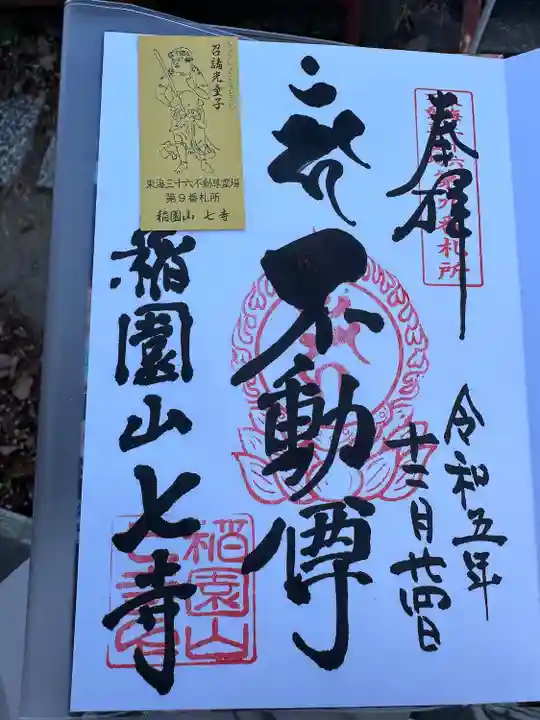 奉拝
東海三十六不動第九番札所
令和五年
十二月廿四日
不動尊
稲園山七寺
稲園山
召請光童子
東海三十六不動尊霊場
第9番札所
稲園山 七寺